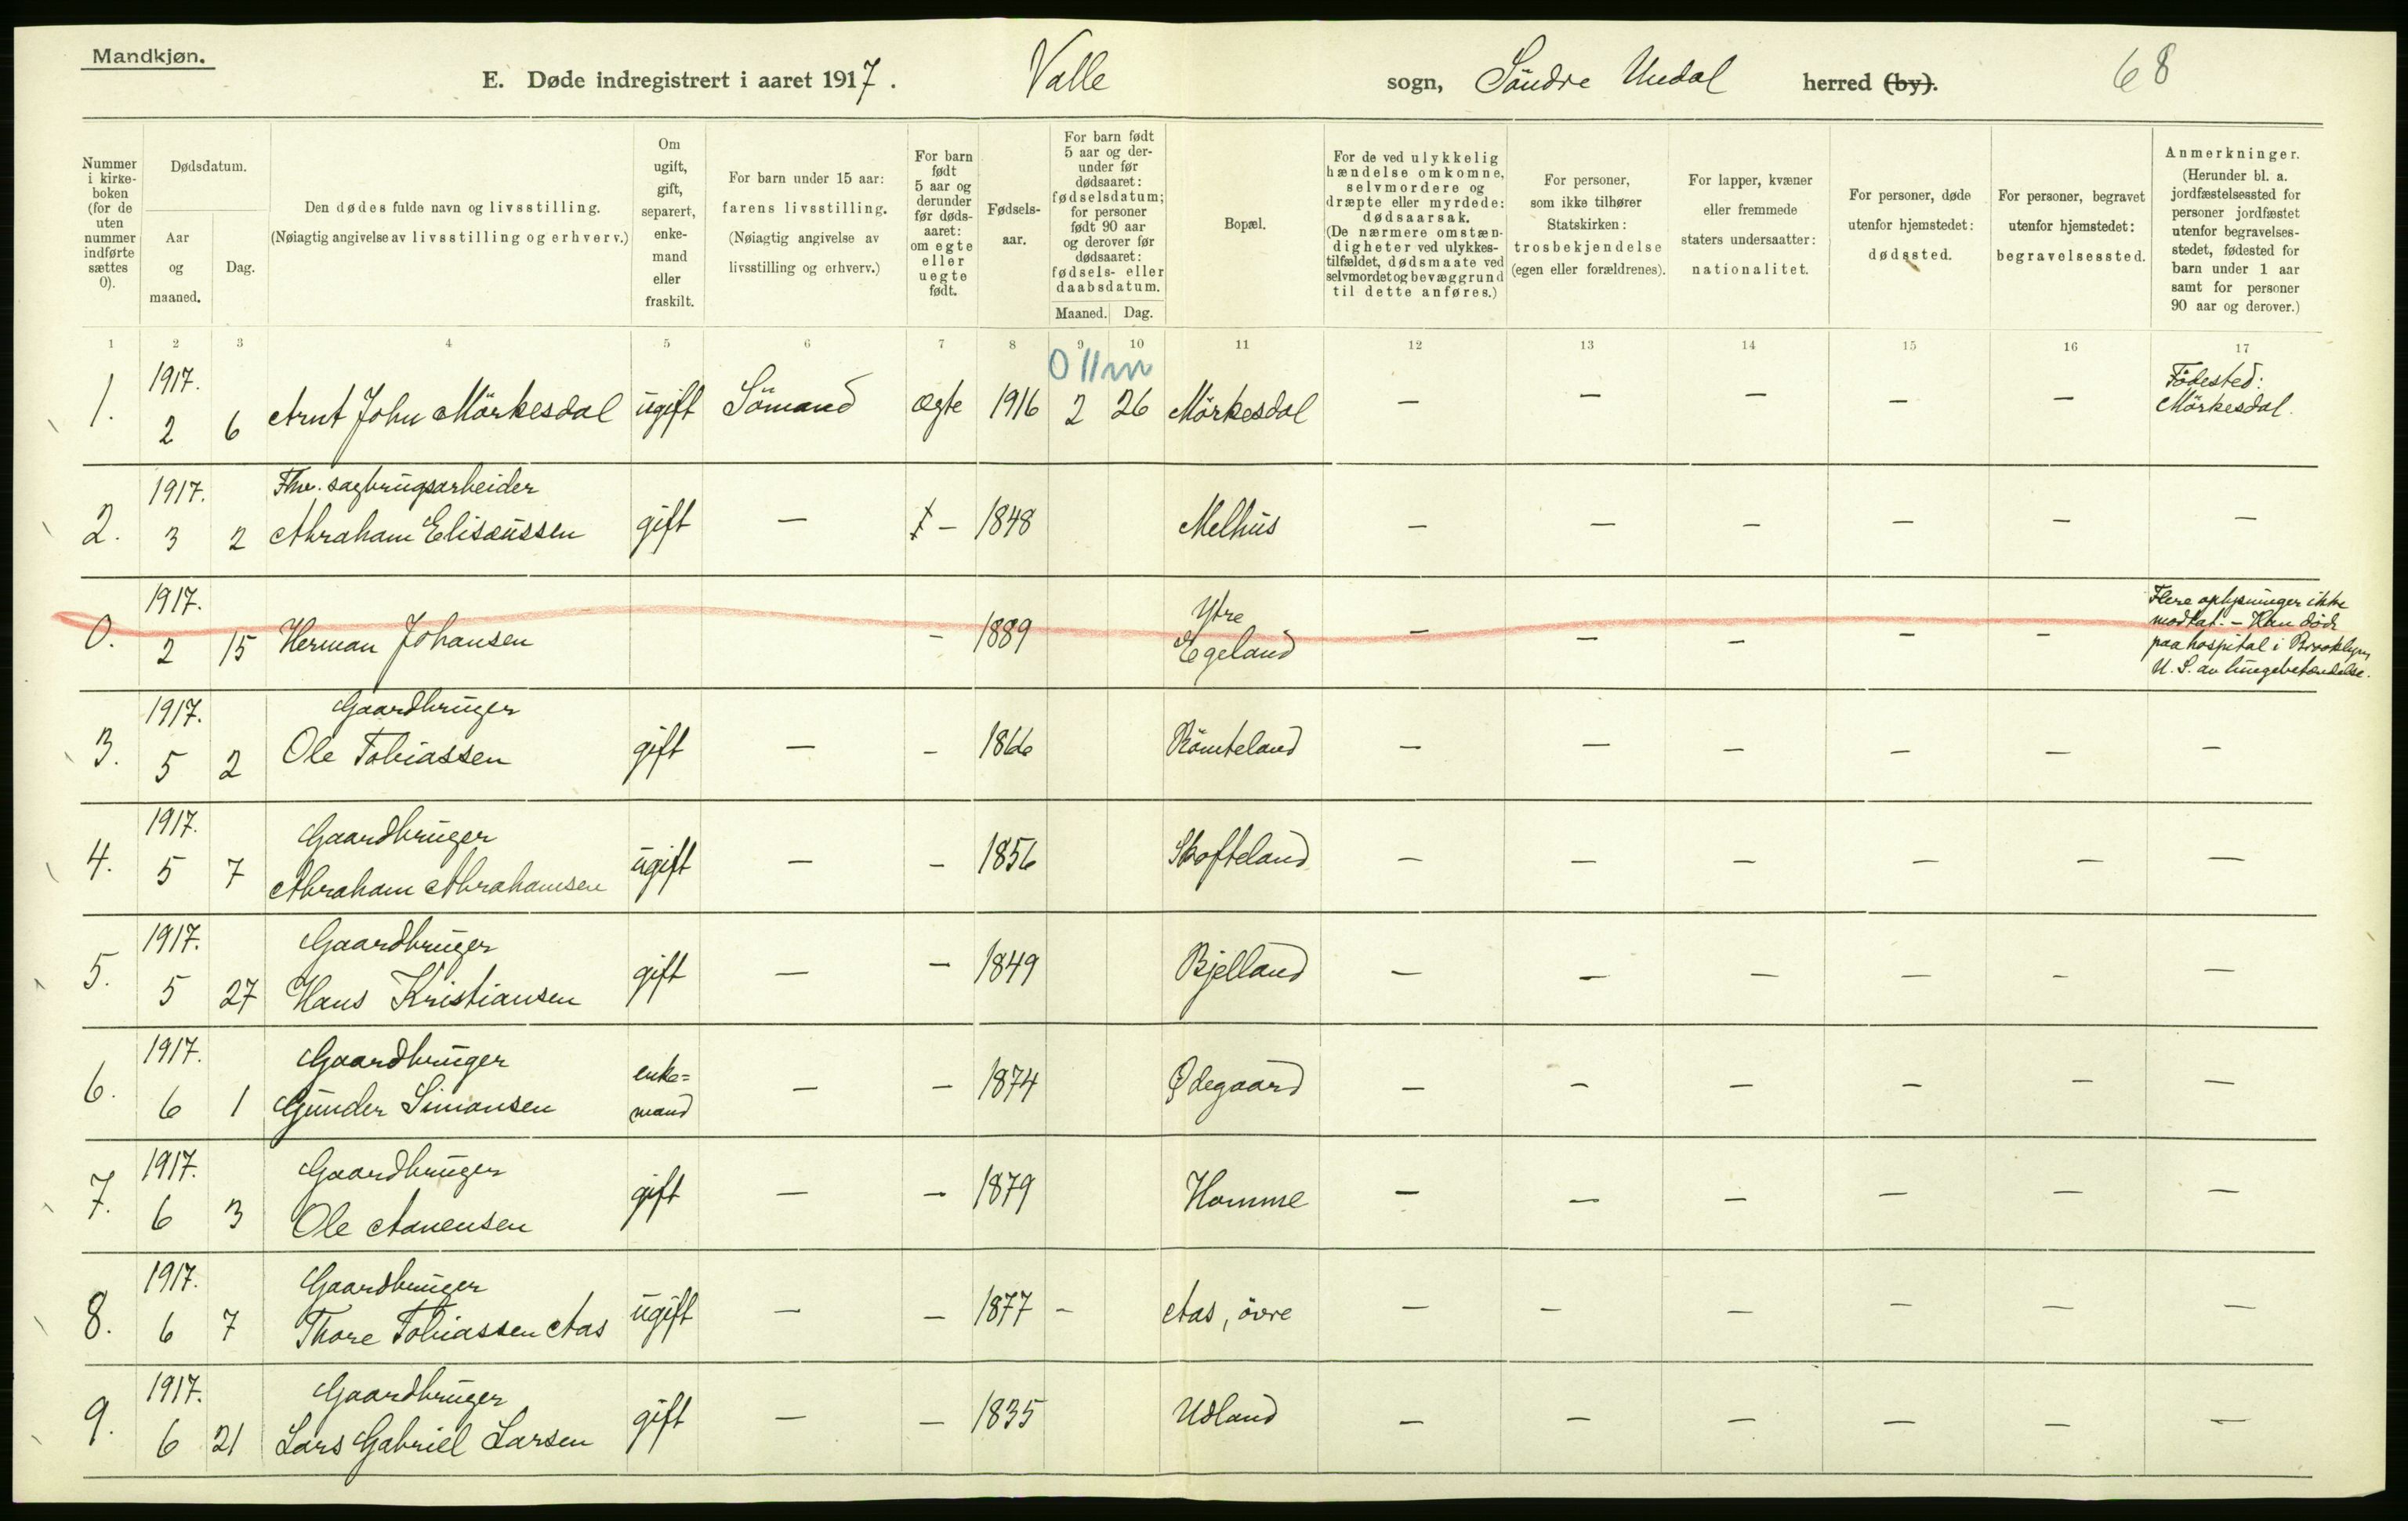 Mandkjøn.
E. Døde indregistrert i aaret 1917. Valle sogn, Söndre Undal herred (by). 68
Nummer i kirke-boken (for de uten nummer indførte sættes 0).
Dødsdatum.
Aar og maaned.
Dag.
Den dødes fulde navn og livsstilling.
(Nøiagtig angivelse av livsstilling og erhverv.)
Om ugift, gift, separert, enke-mand eller fraskilt.
For barn under 15 aar:
farens livsstilling.
(Nøiagtig angivelse av
livsstilling og erhverv.)
For barn født 5 aar og derunder før døds-aaret: om egte eller uegte født.
Fødsels-aar.
For barn født 5 aar og der-under før dødsaaret: fødselsdatum; for personer født 90 aar og derover før dødsaaret: fødsels- eller daabsdatum.
Maaned. Dag.
Bopæl.
For de ved ulykkelig hændelse omkomne, selvmordere og dræpte eller myrdede: dødsaarsak. (De nærmere omstæn-digheter ved ulykkes-tilfældet, dødsmaate ved selvmordet og bevæggrund til dette anføres.)
For personer, som ikke tilhører Statskirken: trosbekjendelse (egen eller forældrenes).
For lapper, kvæner eller fremmede staters undersaatter: nationalitet.
For personer, døde utenfor hjemstedet: dødssted.
For personer, begravet utenfor hjemstedet: begravelsessted.
Anmerkninger. (Herunder bl. a. jordfæstelsessted for personer jordfæstet utenfor begravelses-stedet, fødested for barn under 1 aar samt for personer 90 aar og derover.)
1 2 3 4 5 6 7 8 9 10 11 12 13 14 15 16 17
0 11 m
1. 1917. 2 6 Arnt John Mörkesdal ugift Sömand ægte 1916 2 26 Mörkesdal — — — — — Födested: Mörkesdal.
2. 1917. 3 2 Fhv. sagbrugsarbeider Abraham Elisæussen gift — — 1848 Melhus — — — — — —
0. 1917. 2 15 Herman Johansen — 1889 Ytre Egeland — — — — — Flere oplysninger ikke modtat. — Han döde paa hospital i Brooklyn, U. S. av lungebetændelse.
3. 1917. 5 2 Gaardbruger Ole Tobiassen gift — — 1866 Römteland — — — — — —
4. 1917. 5 7 Gaardbruger Abraham Abrahamsen ugift — — 1856 Skofteland — — — — — —
5. 1917. 5 27 Gaardbruger Hans Kristiansen gift — — 1849 Bjelland — — — — — —
6. 1917. 6 1 Gaardbruger Gunder Simonsen enke=mand — — 1874 Ødegaard — — — — — —
7. 1917. 6 3 Gaardbruger Ole Aanensen gift — — 1879 Homme — — — — — —
8. 1917. 6 7 Gaardbruger Thore Tobiassen Aas ugift — — 1877 — Aas, övre — — — — — —
9. 1917. 6 21 Gaardbruger Lars Gabriel Larsen gift — — 1835 Udland — — — — — —